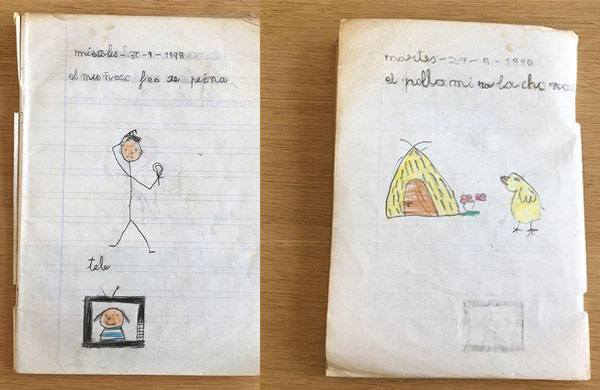 miercoles - 30 - 9 - 1998
el muñeco feo se peina
tele
martes - 29 - 9 - 1998
el pollo mira la choza